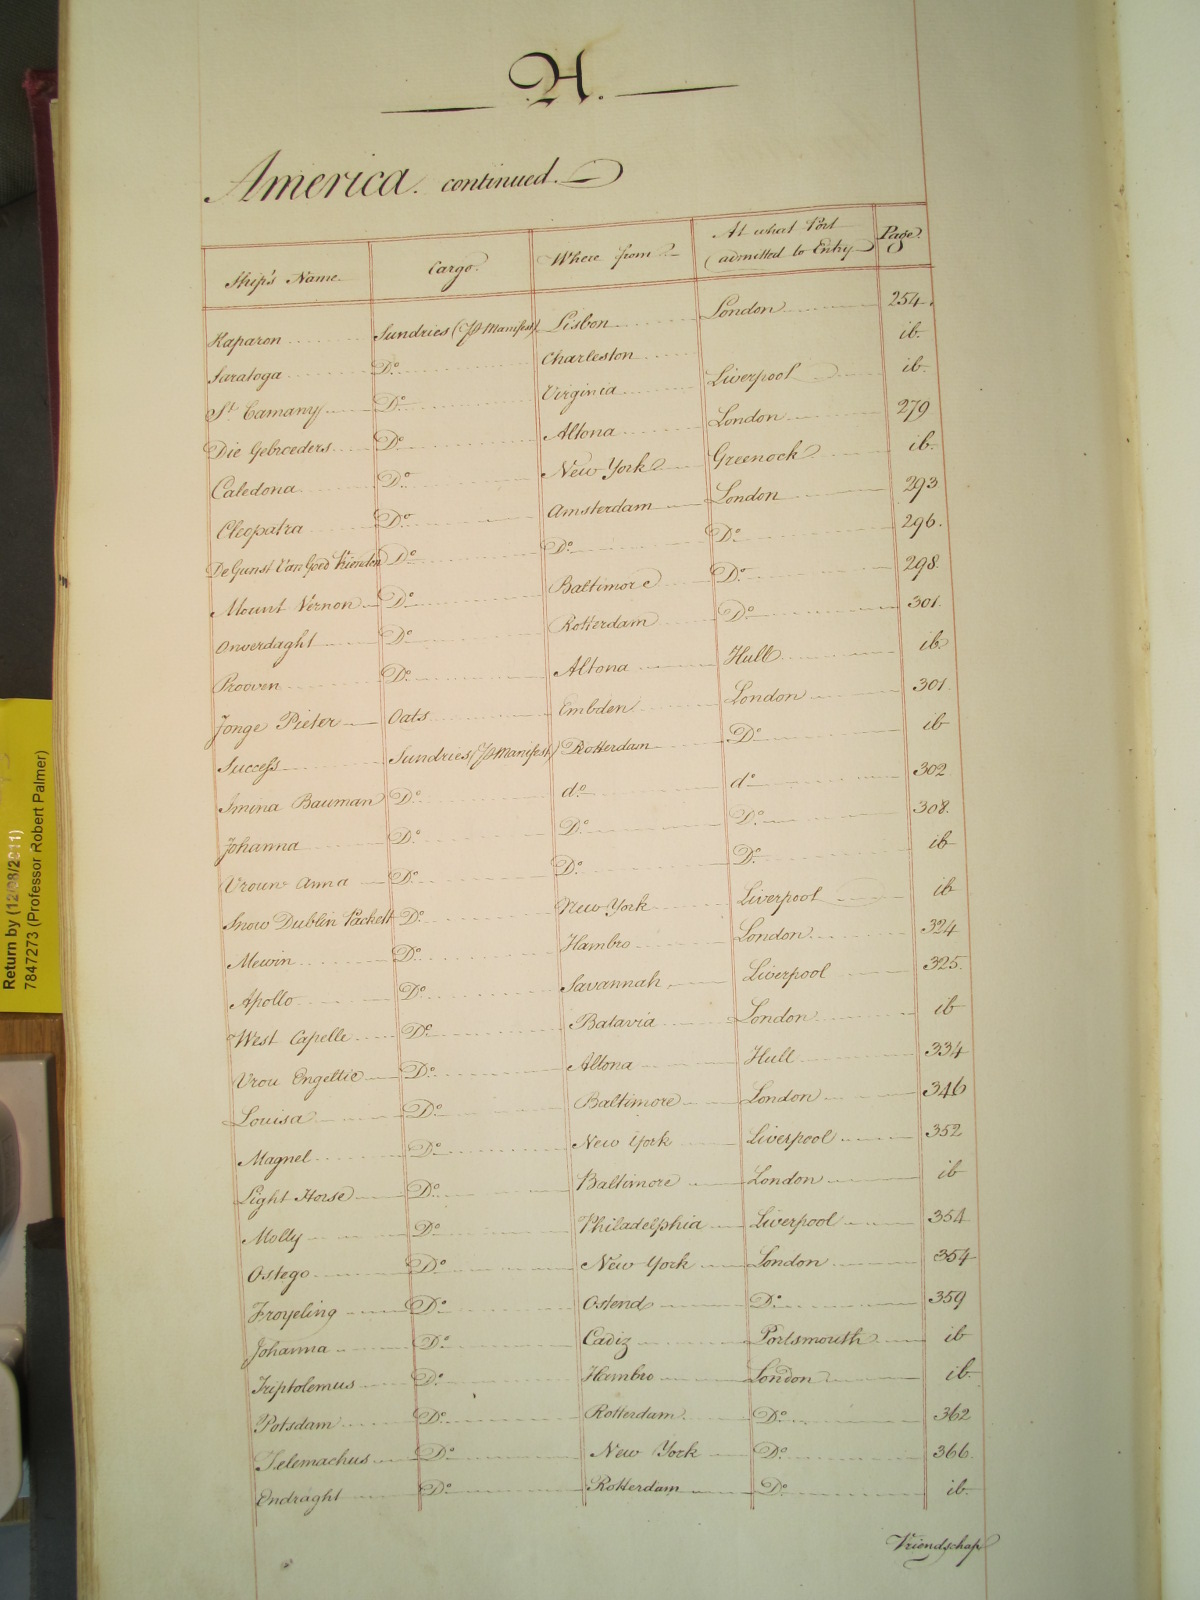 A.
America. continued.
Ship's Name Cargo. Where from At what Port admitted to Entry Page
Raparon Sundries (Pr Manifest) Lisbon London 254.
Saratoga Do. Charleston ib.
St. Tamany Do. Virginia Liverpool ib.
Die Gebroeders Do. Altona London 279
Caledona Do. New York Greenock ib.
Cleopatra Do. Amsterdam London 293
De Gunst Van Goed Vrienden Do. Do. Do. 296.
Mount Vernon Do. Baltimore Do. 298.
Onverdaght Do. Rotterdam Do. 301.
Prooven Do. Altona Hull ib.
Jonge Pieter Oats Embden London 301.
Success Sundries (Pr Manifest) Rotterdam Do. ib
Imina Bauman Do. do. do. 302
Johanna Do. Do. Do. 308.
Vrouw Anna Do. Do. Do. ib
Snow Dublin Packett Do. New York Liverpool ib
Mewin Do. Hambro London 324
Apollo Do. Savannah Liverpool 325.
West Capelle Do. Batavia London ib
Vrou Engeltie Do. Altona Hull 334
Louisa Do. Baltimore London 346
Magnel Do. New York Liverpool 352
Light Horse Do. Baltimore London ib
Molly Do. Philadelphia Liverpool 354
Ostego Do. New York London 354
Froyeling Do. Ostend Do. 359
Johanna Do. Cadiz Portsmouth ib
Triptolemus Do. Hambro London ib.
Potsdam Do. Rotterdam Do. 362
Telemachus Do. New York Do. 366.
Endraght Do. Rotterdam Do. ib.
Vriendschap
Return by (12/08/2011)
7847273 (Professor Robert Palmer)